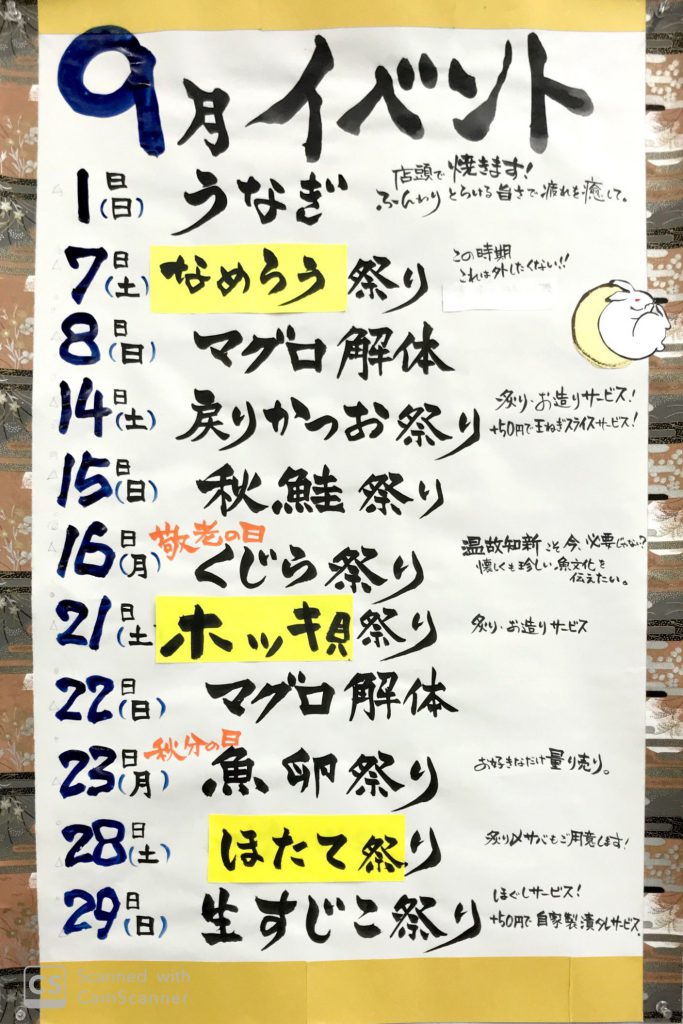 9月イベント
1日(日) うなぎ
店頭で焼きます!
ふ〜んわりとろける旨さで疲れを癒して。
7日(土) なめろう祭り
この時期
これは外したくない!!
8日(日) マグロ解体
14日(土) 戻りかつお祭り
炙り・お造りサービス!
+50円で玉ねぎスライスサービス!
15日(日) 秋鮭祭り
敬老の日
16日(月) くじら祭り
温故知新こそ今、必要じゃない?
懐しくも珍しい魚文化を
伝えたい。
21日(土 ホッキ貝祭り
炙り・お造りサービス
22日(日) マグロ解体
秋分の日
23日(月) 魚卵祭り
お好きなだけ量り売り。
28日(土) ほたて祭り
炙り〆サバもご用意します!
29日(日) 生すじこ祭り
ほぐしサービス!
+50円で自家製漬タレサービス
CS Scanned with
CamScanner